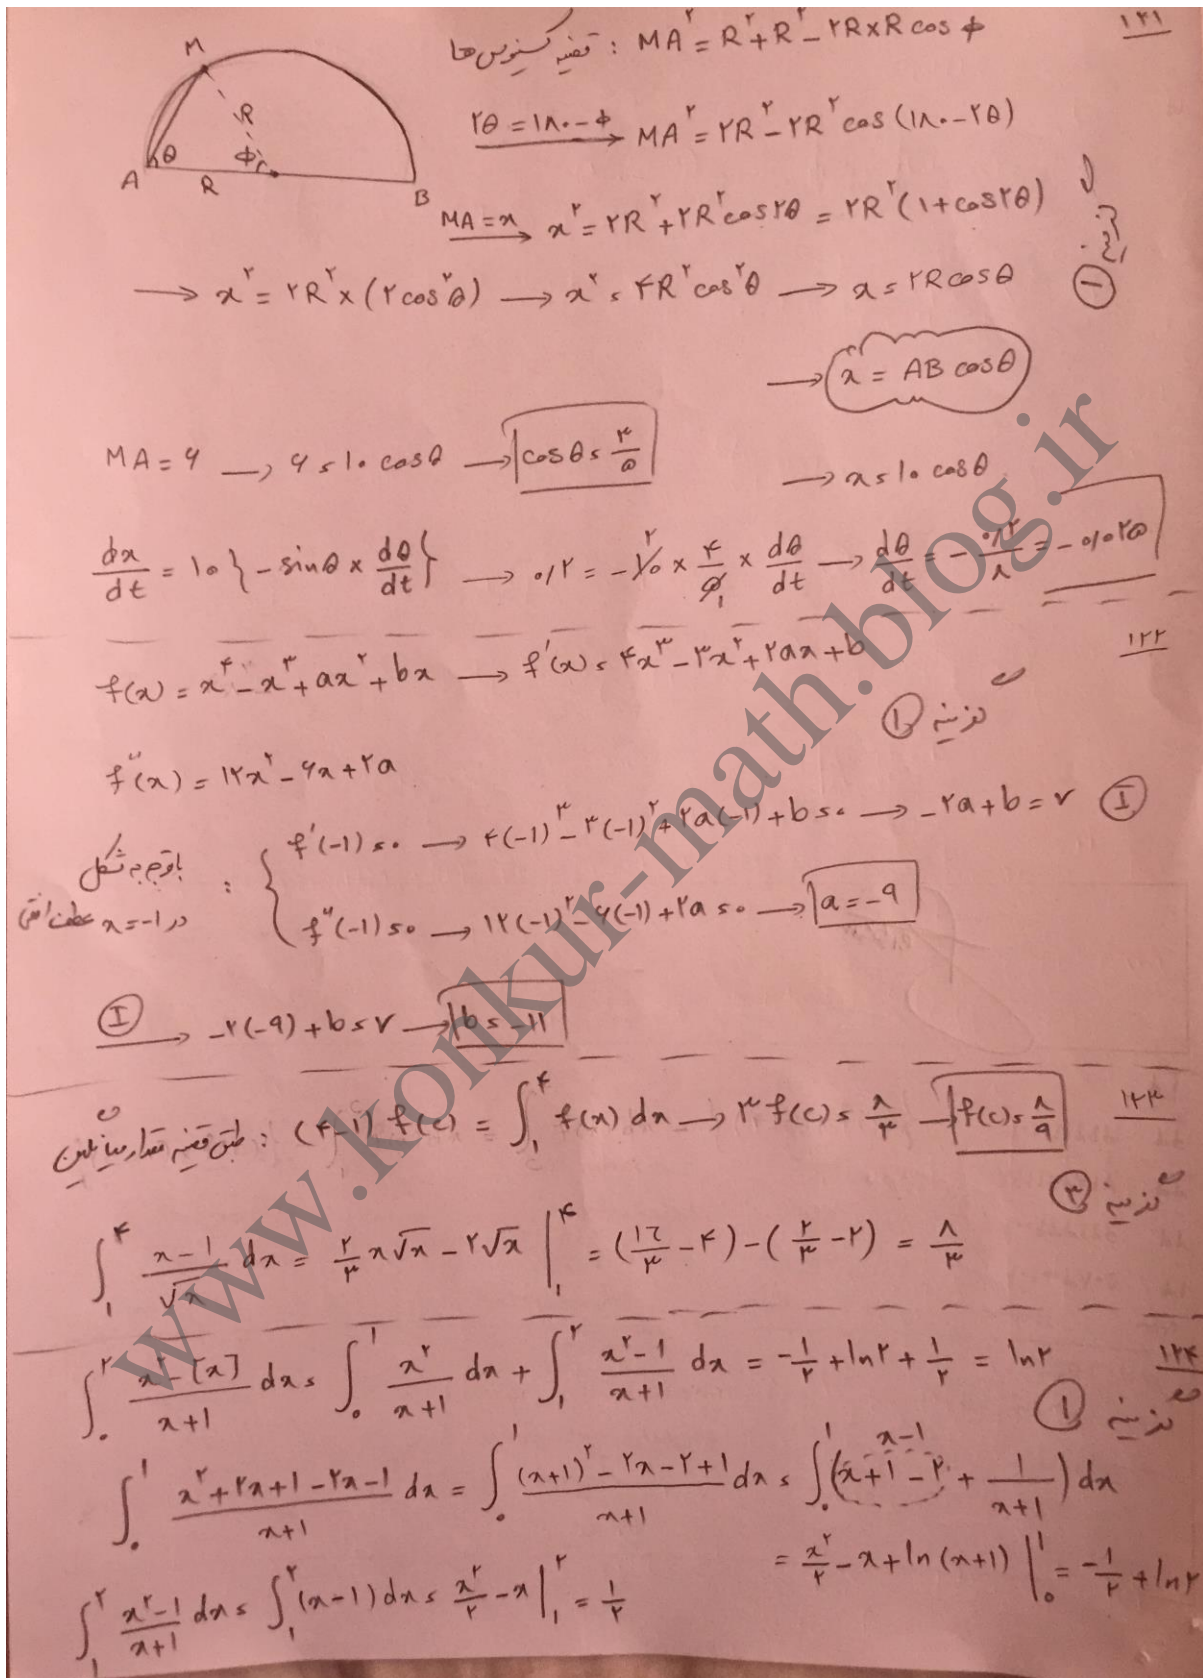 ۱۲۱
قضیه کسینوس ها : MA² = R² + R² - ۲R×R cos φ
M
R
θ φ
A R B
۲θ = ۱۸۰ - φ → MA² = ۲R² - ۲R² cos (۱۸۰ - ۲θ)
MA = x → x² = ۲R² + ۲R² cos ۲θ = ۲R² (۱ + cos ۲θ)
گزینه ۱
→ x² = ۲R² × (۲cos²θ) → x² = ۴R² cos²θ → x = ۲R cosθ
→ x = AB cosθ
MA = ۶ → ۶ = ۱۰ cosθ → cosθ = ۳/۵
→ x = ۱۰ cosθ
dx/dt = ۱۰ { - sinθ × dθ/dt } → ۰/۲ = -۱۰ × ۴/۵ × dθ/dt → dθ/dt = - ۰/۲/۸ = -۰/۰۲۵
۱۲۲
f(x) = x⁴ - x³ + ax² + bx → f'(x) = ۴x³ - ۳x² + ۲ax + b
گزینه ۱
f"(x) = ۱۲x² - ۶x + ۲a
با توجه به شکل در x = -۱ عطف افقی :
f'(-۱) = ۰ → ۴(-۱)³ - ۳(-۱)² + ۲a(-۱) + b = ۰ → -۲a + b = ۷ Ⅰ
f"(-۱) = ۰ → ۱۲(-۱)² - ۶(-۱) + ۲a = ۰ → a = -۹
Ⅰ → -۲(-۹) + b = ۷ → b = -۱۱
۱۲۳
طبق قضیه مقدار میانگین : (۴-۱) f(c) = ∫₁⁴ f(x) dx → ۳ f(c) = ۸/۳ → f(c) = ۸/۹
گزینه ۳
∫₁⁴ (x-۱)/√x dx = ۲/۳ x√x - ۲√x |₁⁴ = (۱۶/۳ - ۴) - (۲/۳ - ۲) = ۸/۳
۱۲۴
∫₀² (x² - [x])/(x+۱) dx = ∫₀¹ x²/(x+۱) dx + ∫₁² (x²-۱)/(x+۱) dx = -۱/۲ + ln۲ + ۱/۲ = ln۲
گزینه ۱
x-۱
∫₀¹ (x² + ۲x + ۱ - ۲x - ۱)/(x+۱) dx = ∫₀¹ ((x+۱)² - ۲x - ۲ + ۱)/(x+۱) dx = ∫₀¹ (x + ۱ - ۲ + ۱/(x+۱)) dx
= x²/۲ - x + ln(x+۱) |₀¹ = -۱/۲ + ln۲
∫₁² (x²-۱)/(x+۱) dx = ∫₁² (x-۱) dx = x²/۲ - x |₁² = ۱/۲
www.konkur-math.blog.ir